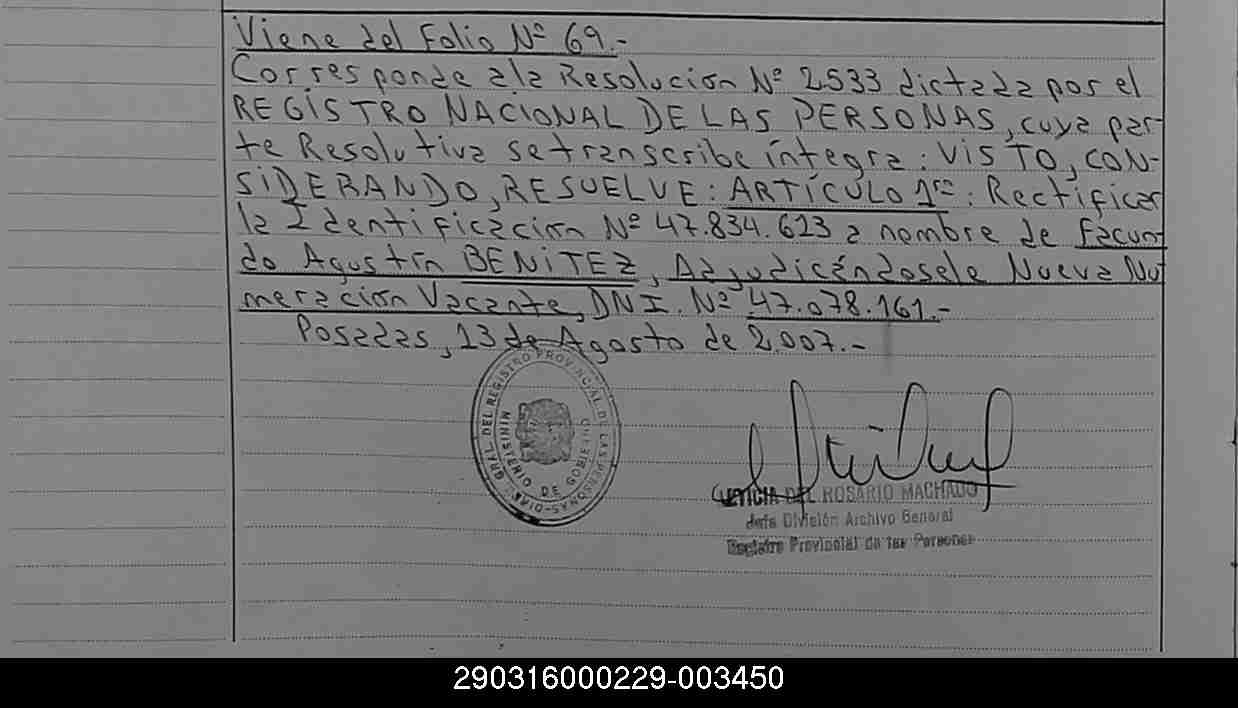 Viene del Folio Nº 69.-
Corresponde a la Resolución Nº 2533 dictada por el
REGISTRO NACIONAL DE LAS PERSONAS, cuya par-
te Resolutiva se transcribe íntegra: VISTO, CON-
SIDERANDO, RESUELVE: ARTÍCULO 1ro: Rectificar
la Identificación Nº 47.834.623 a nombre de Facun
do Agustín BENITEZ, Adjudicándosele Nueva Nu
meración Vacante, DNI. Nº 47.078.161.-
Posadas, 13 de Agosto de 2.007.-
GRAL. DEL REGISTRO PROVINCIAL DE LAS PERSONAS
MINISTERIO DE GOBIERNO
LETICIA DEL ROSARIO MACHADO
Jefa División Archivo General
Registro Provincial de las Personas
290316000229-003450